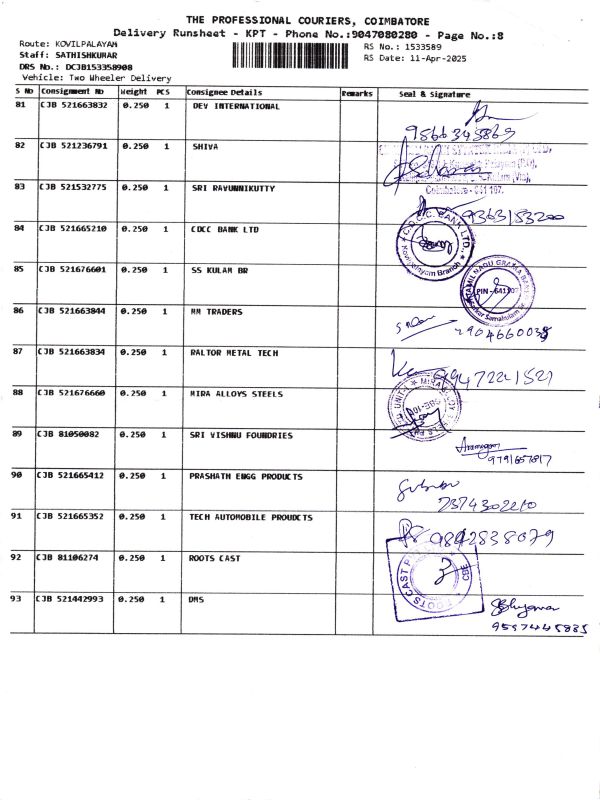 THE PROFESSIONAL COURIERS, COIMBATORE
Delivery Runsheet - KPT - Phone No.:9047080280 - Page No.:8
Route: KOVILPALAYAM
RS No.: 1533589
Staff: SATHISHKUMAR
RS Date: 11-Apr-2025
DRS No.: DCJB153358908
Vehicle: Two Wheeler Delivery
S No Consignment No Weight PCS Consignee Details Remarks Seal & Signature
81 CJB 521663832 0.250 1 DEV INTERNATIONAL
82 CJB 521236791 0.250 1 SHIVA
83 CJB 521532775 0.250 1 SRI RAVUNNIKUTTY
Coimbatore - 641 107.
9363153200
84 CJB 521665210 0.250 1 CDCC BANK LTD
C.D.C.C. BANK LTD.,
Branch
85 CJB 521676601 0.250 1 SS KULAM BR
TAMIL NADU GRAMA BANK
PIN - 641107
86 CJB 521663844 0.250 1 MM TRADERS
87 CJB 521663834 0.250 1 RALTOR METAL TECH
88 CJB 521676660 0.250 1 MIRA ALLOYS STEELS
89 CJB 81050082 0.250 1 SRI VISHNU FOUNDRIES
9791657817
90 CJB 521665412 0.250 1 PRASHATH ENGG PRODUCTS
7374302210
91 CJB 521665352 0.250 1 TECH AUTOMOBILE PROUDCTS
9842838079
92 CJB 81106274 0.250 1 ROOTS CAST
ROOTS CAST
CBE
93 CJB 521442993 0.250 1 DMS
9597445885